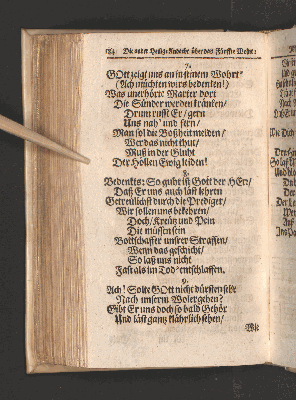 184 Die ander Heilige Andacht über das Fünffte Wohrt:
7.
GOtt zeigt uns an in seinem Wohrt
(Ach müchten wirs bedenken!)
Was unerhörte Marter dort
Die Sünder werden kränken/
Drum rufft Er/ gern
Uns nah' und fern/
Man sol die Boßheit melden/
Wer das nicht thut/
Muß in der Gluht
Der Höllen Ewig leiden!
8.
Bedenkts: So guht ist Gott der HErr/
Daß Er uns auch läst lehren
Getreülichst durch die Prediger/
Wir sollen uns bekehren/
Doch/ Kreütz und Pein
Die müssen sein
Bottschaffter unser Straffen/
Wenn das geschicht/
So laß uns nicht
Fast als im Tod' entschlaffen.
9.
Ach! Solte GOtt nicht dürsten sehr
Nach unserm Wolergehen?
Gibt Er uns doch so bald Gehör
Und läst gantz klährlich sehen/
Wie